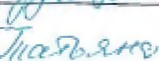 Татьяна